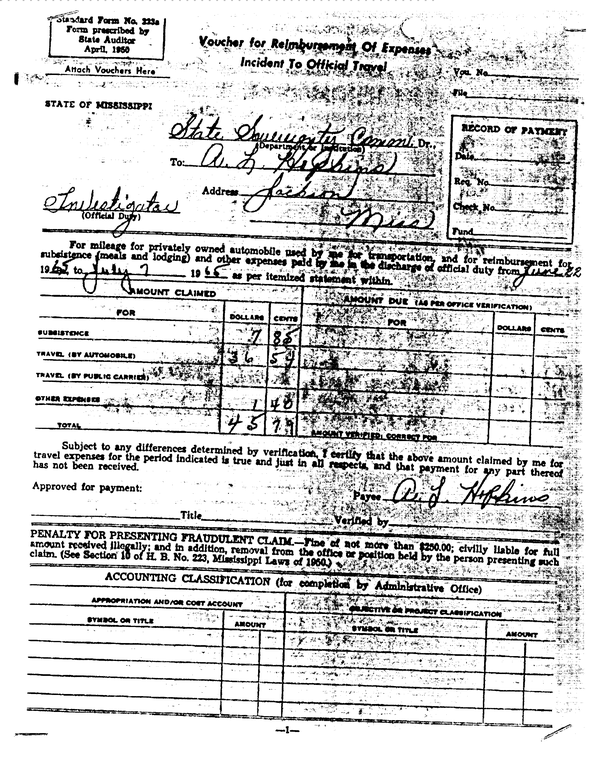 Standard Form No. 233a
Form prescribed by
State Auditor
April, 1950
Attach Vouchers Here
Voucher for Reimbursement Of Expenses
Incident To Official Travel
Vou. No.
File
STATE OF MISSISSIPPI
State Sovereignty Comm. Dr.,
(Department or Institution)
To: A. L. Hopkins
Address Jackson
Miss
Investigator
(Official Duty)
RECORD OF PAYMENT
Date
Req. No.
Check No.
Fund
For mileage for privately owned automobile used by me for transportation, and for reimbursement for
subsistence (meals and lodging) and other expenses paid by me in the discharge of official duty from June 22
1965 to July 7 1965 as per itemized statement within.
AMOUNT CLAIMED
AMOUNT DUE (AS PER OFFICE VERIFICATION)
FOR DOLLARS CENTS FOR DOLLARS CENTS
SUBSISTENCE 7 85
TRAVEL (BY AUTOMOBILE) 36 54
TRAVEL (BY PUBLIC CARRIER)
OTHER EXPENSES 1 40
TOTAL 45 79
AMOUNT VERIFIED: CORRECT FOR
Subject to any differences determined by verification, I certify that the above amount claimed by me for
travel expenses for the period indicated is true and just in all respects, and that payment for any part thereof
has not been received.
Approved for payment:
Payee A. L. Hopkins
Title Verified by
PENALTY FOR PRESENTING FRAUDULENT CLAIM.—Fine of not more than $250.00; civilly liable for full
amount received illegally; and in addition, removal from the office or position held by the person presenting such
claim. (See Section 10 of H. B. No. 223, Mississippi Laws of 1950.)
ACCOUNTING CLASSIFICATION (for completion by Administrative Office)
APPROPRIATION AND/OR COST ACCOUNT
OBJECTIVE OR PROJECT CLASSIFICATION
SYMBOL OR TITLE AMOUNT SYMBOL OR TITLE AMOUNT
—1—